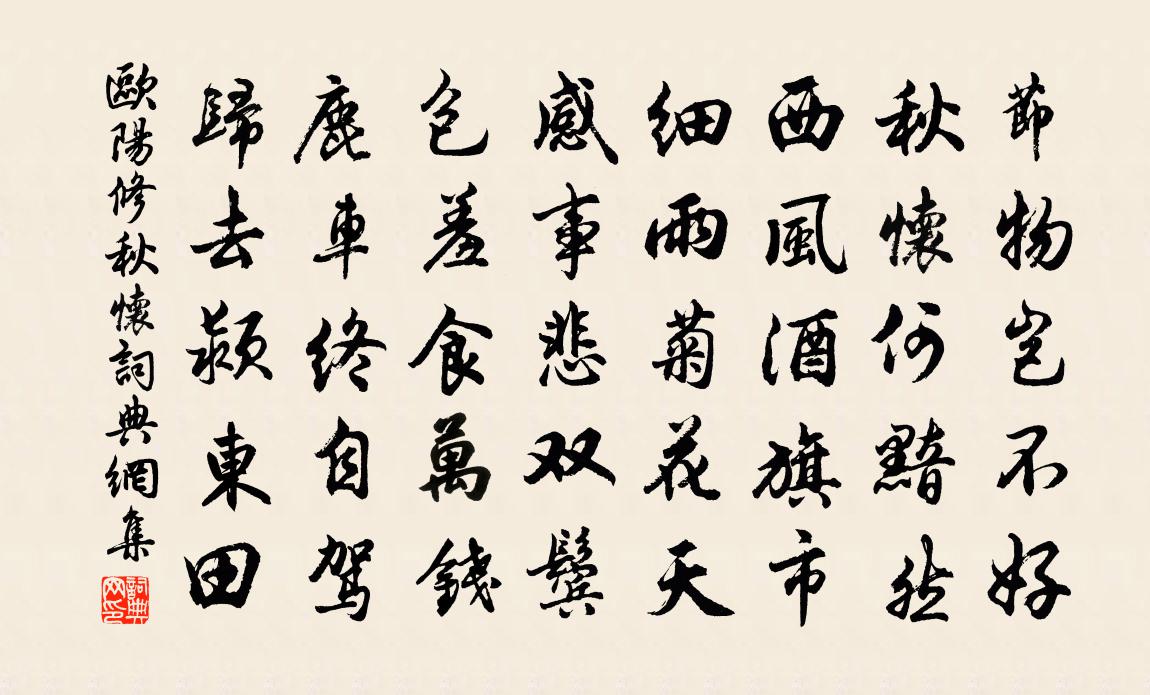 節物豈不好
秋懷何黯然
西風酒旗市
細雨菊花天
感事悲双鬢
包羞食萬錢
鹿車終自駕
歸去潁東田
歐陽修秋懷詞典網集
詞典
网印